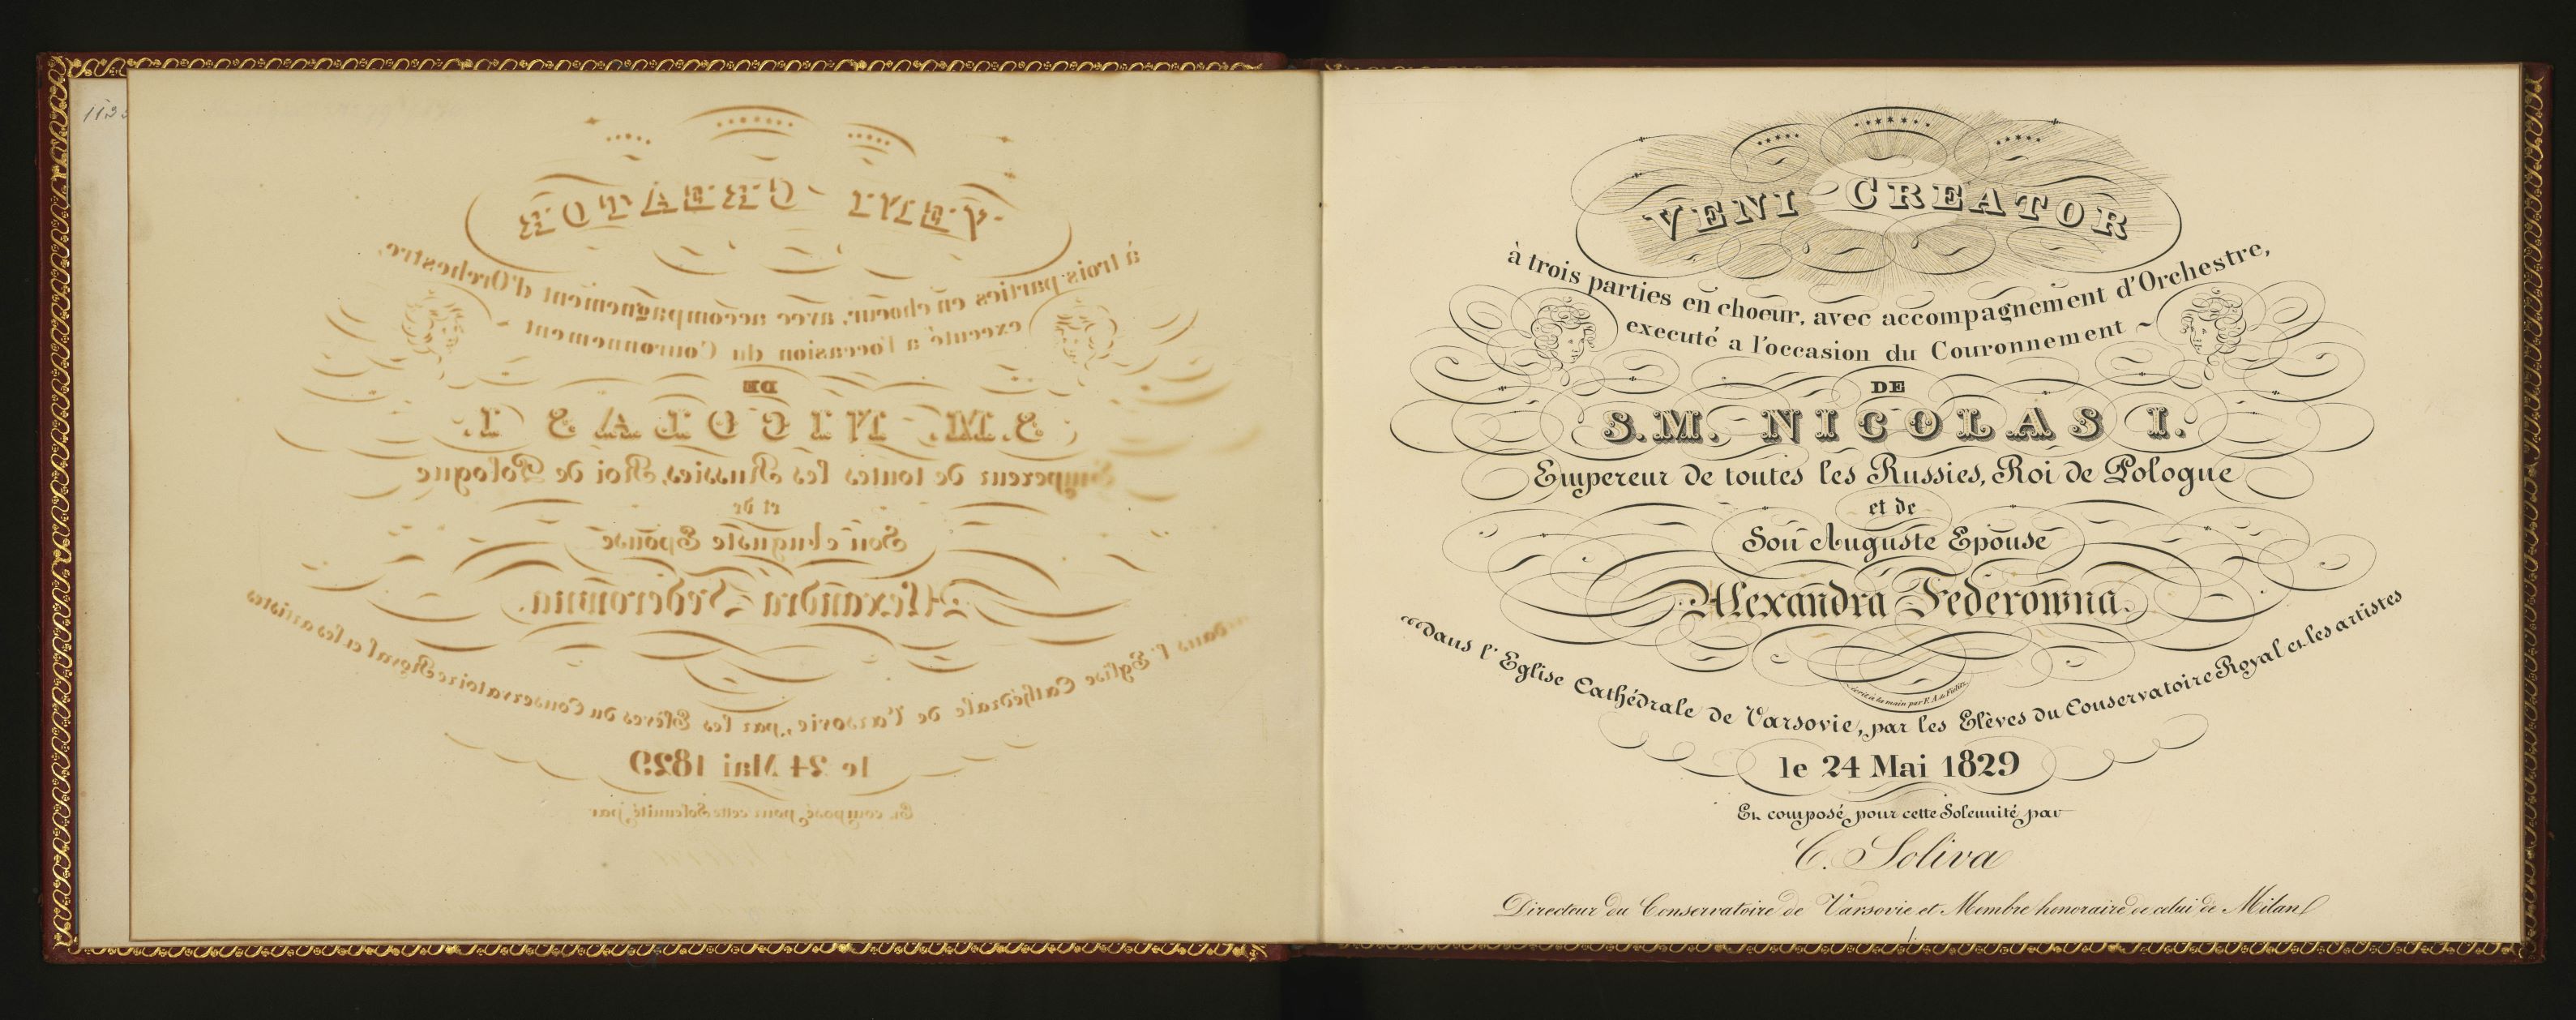 1123
VENI CREATOR
à trois parties en choeur, avec accompagnement d'Orchestre,
executé a l'occasion du Couronnement ~
DE
S.M. NICOLAS I.
Empereur de toutes les Russies, Roi de Pologne
et de
Son Auguste Epouse
Alexandra Federowna.
écrit à la main par F. A. de
dans l'Eglise Cathédrale de Varsovie, par les Elèves du Conservatoire Royal et les artistes
le 24 Mai 1829
Et composé pour cette Solennité par
C. Soliva
Directeur du Conservatoire de Varsovie et Membre honoraire de celui de Milan